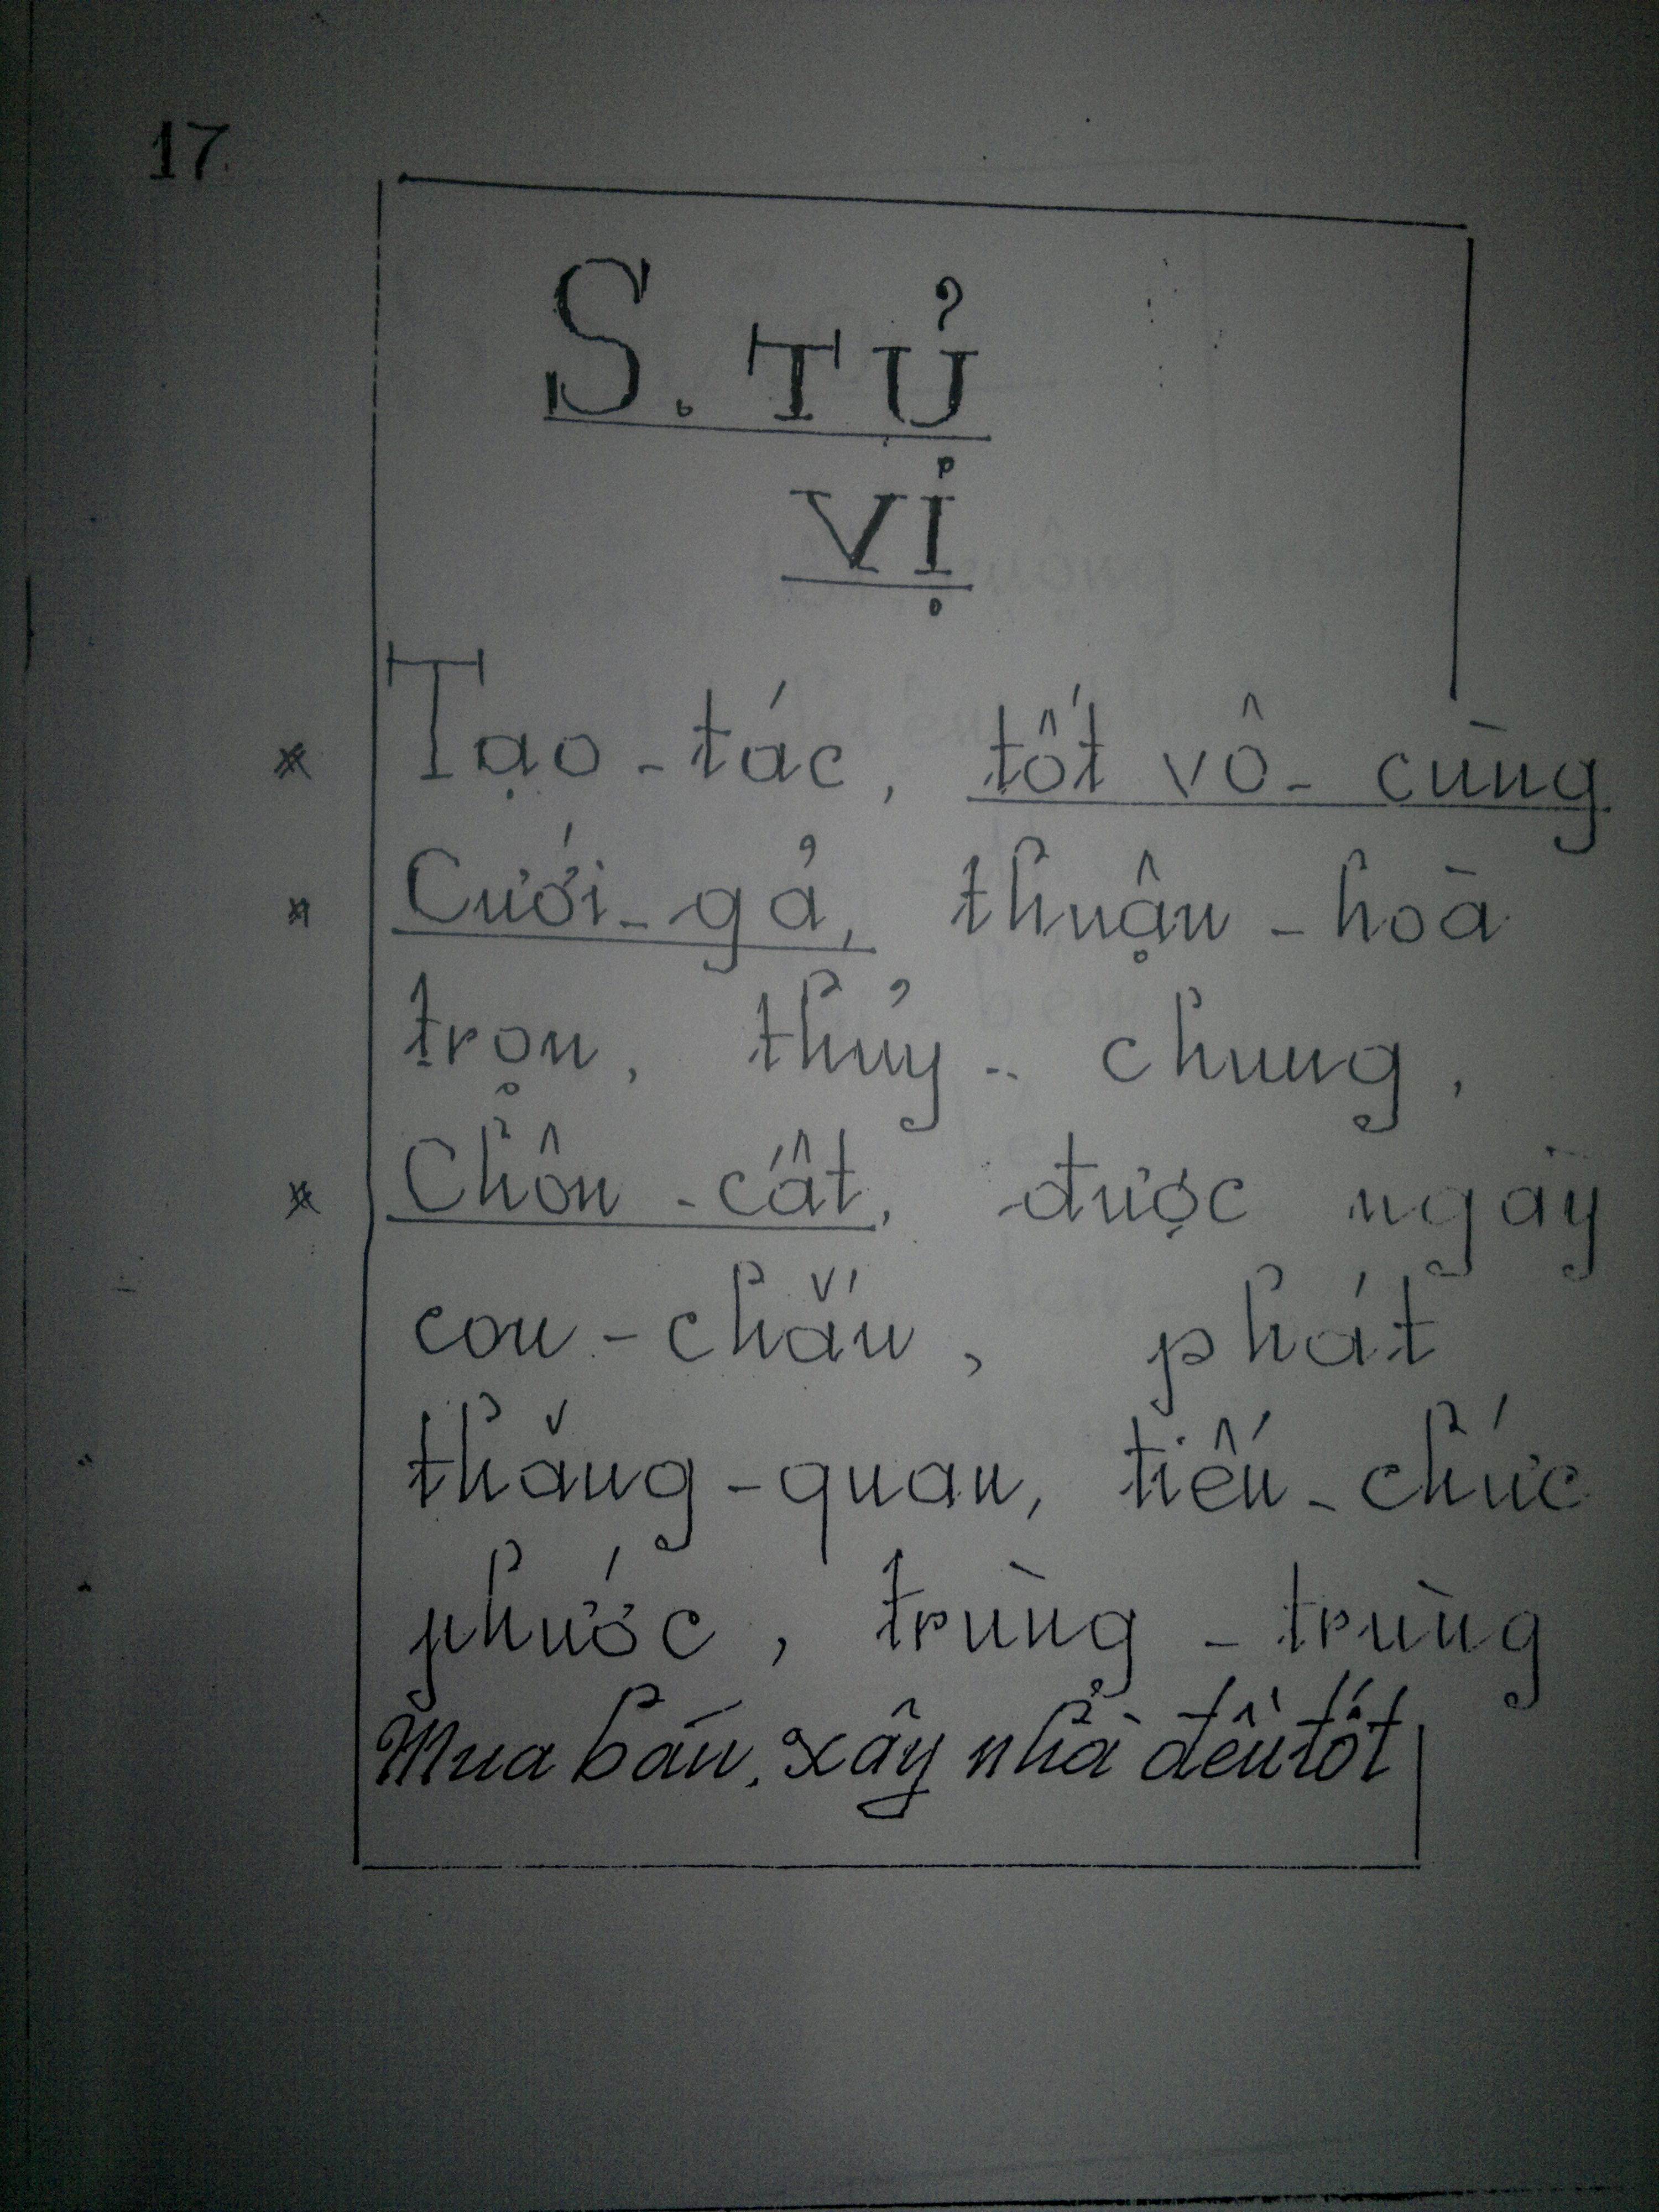 17
S. TỦ
VỊ
* Tạo-tác, tốt vô-cùng
* Cưới-gả, thuận-hoà
trọn, thủy-chung,
* Chôn-cất, được ngày
con-chắn, phát
thăng-quan, tiến-chức
phước, trùng-trùng
Mua bán, xây nhà đều tốt